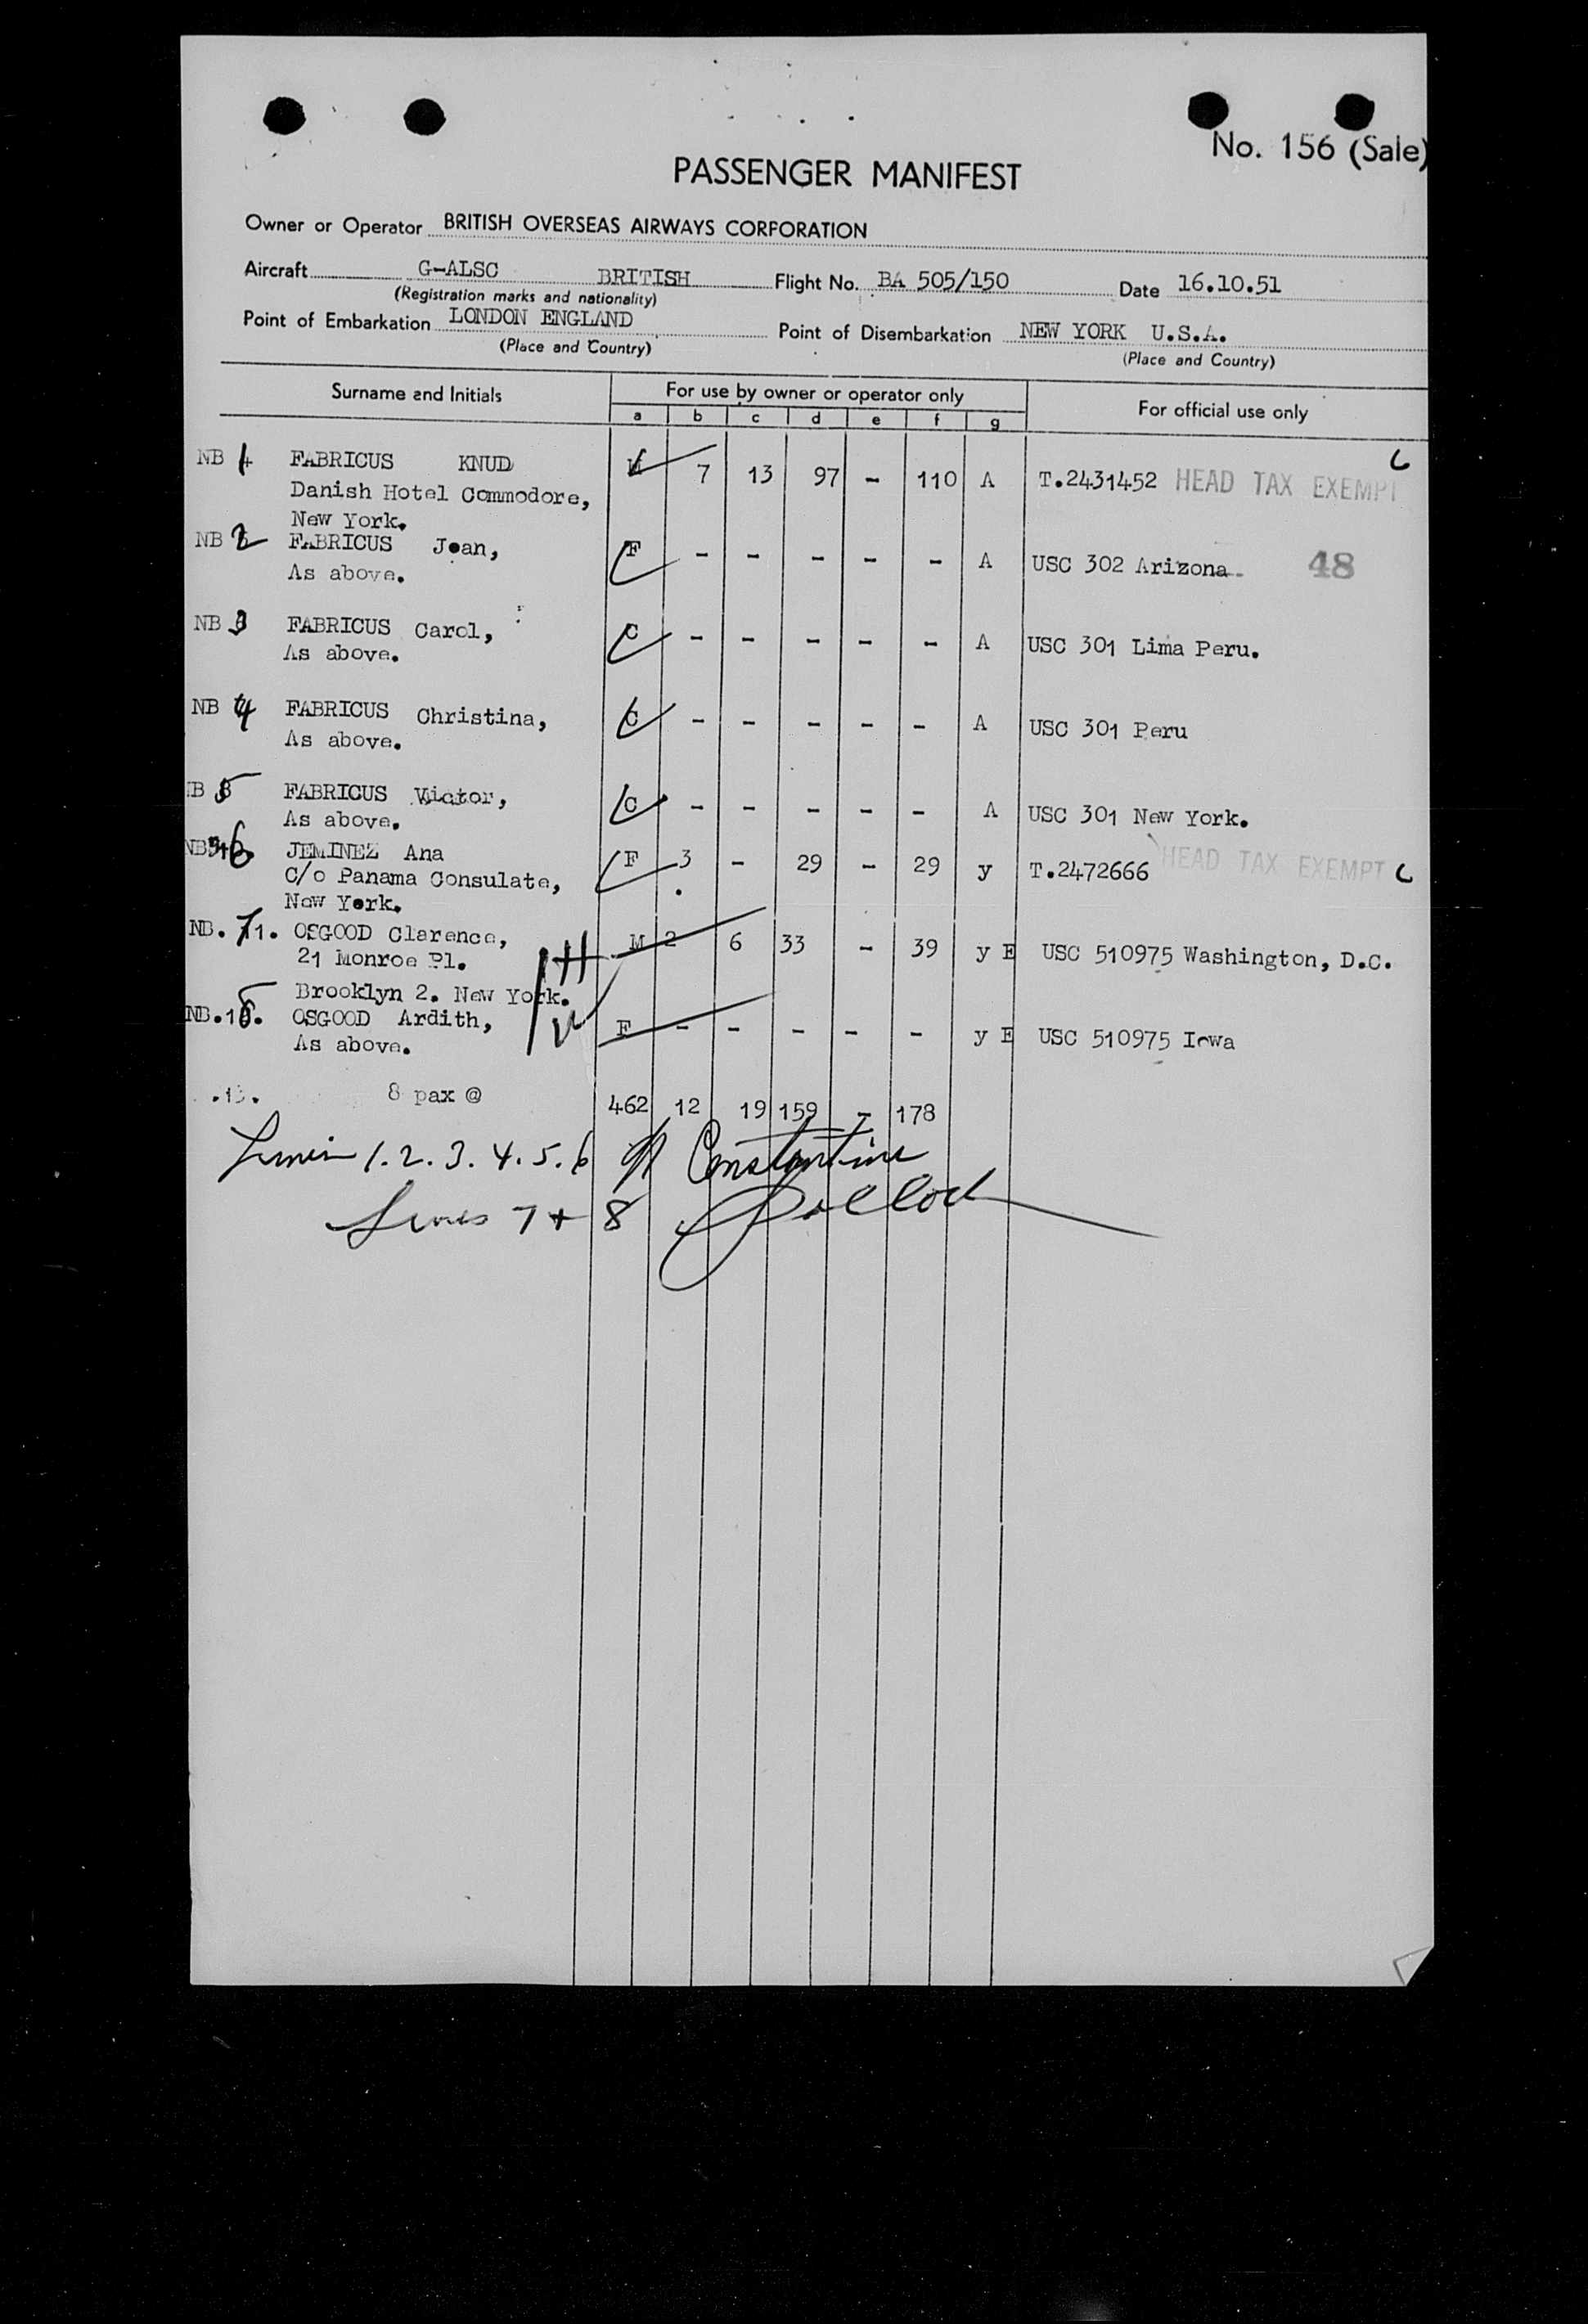 No. 156 (Sale)
PASSENGER MANIFEST
Owner or Operator BRITISH OVERSEAS AIRWAYS CORPORATION
Aircraft G-ALSC BRITISH Flight No. BA 505/150 Date 16.10.51
(Registration marks and nationality)
Point of Embarkation LONDON ENGLAND Point of Disembarkation NEW YORK U.S.A.
(Place and Country) (Place and Country)
Surname and Initials For use by owner or operator only For official use only
a b c d e f g
NB 1 FABRICUS KNUD M 7 13 97 - 110 A T.2431452 HEAD TAX EXEMPT C
Danish Hotel Commodore,
New York.
NB 2 FABRICUS Joan, F - - - - - A USC 302 Arizona. 48
As above.
NB 3 FABRICUS Carol, C - - - - - A USC 301 Lima Peru.
As above.
NB 4 FABRICUS Christina, C - - - - - A USC 301 Peru
As above.
NB 5 FABRICUS Victor, C - - - - - A USC 301 New York.
As above.
NB 6 JEMINEZ Ana F 3 - 29 - 29 y T.2472666 HEAD TAX EXEMPT C
C/o Panama Consulate,
New York.
NB. 71. OSGOOD Clarence, M 2 6 33 - 39 y E USC 510975 Washington, D.C.
21 Monroe Pl.
Brooklyn 2. New York.
NB.18. OSGOOD Ardith, F - - - - - y E USC 510975 Iowa
As above.
.13. 8 pax @ 462 12 19 159 - 178
Lines 1.2.3.4.5.6 Constantine
Lines 7 + 8 Pollock